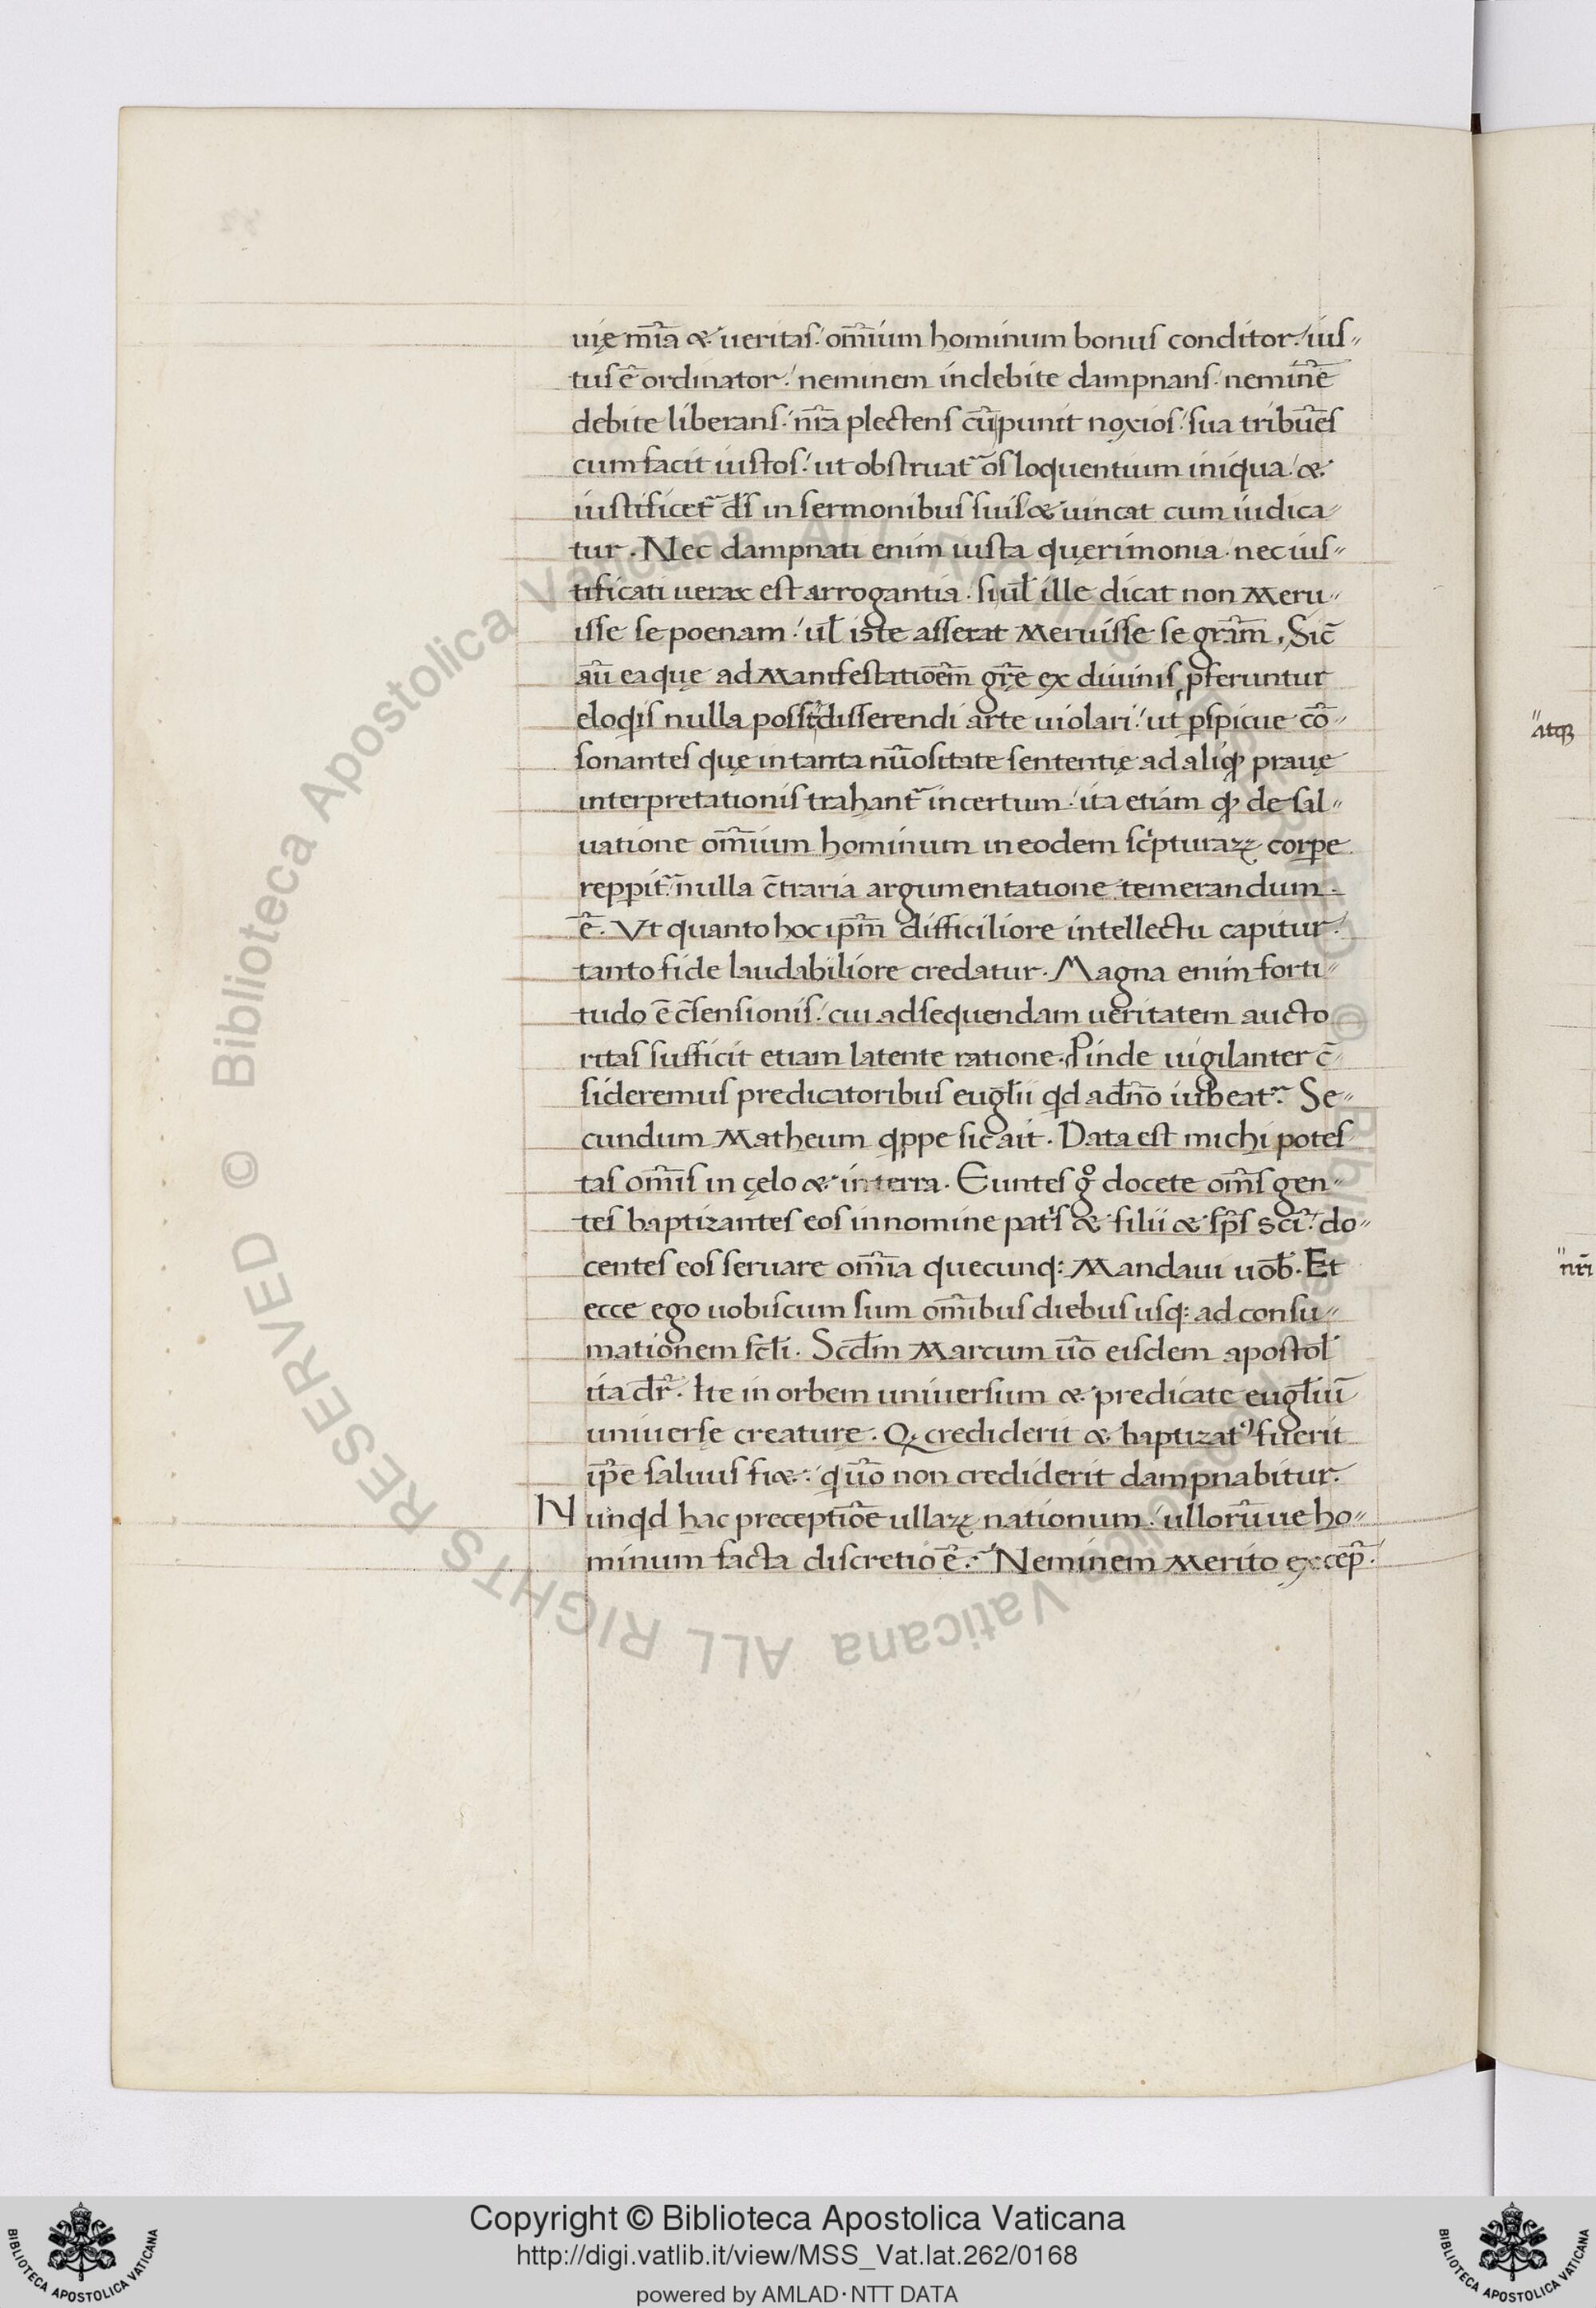 uię m̅ia & ueritas. om̅ium hominum bonus conditor. ius-
tus e̅ ordinator. neminem indebite dampnans. nemine̅
debite liberans. nr̅a plectens cu̅ punit noxios. sua tribue̅s
cum facit iustos. ut obstruat᷑ os loquentium iniqua. &
iustificet᷑ ds̅ in sermonibus suis & uincat cum iudica-
tur. Nec dampnati enim iusta querimonia. nec ius-
tificati uerax est arrogantia. si ul̅ ille dicat non meru-
isse se poenam. ul̅ iste asserat meruisse se gra̅m. Sic̅
au̅ ea quę ad manifestatioe̅m gr̅ę ex diuinis ꝓferuntur
eloqis nulla posst̅ disserendi arte uiolari. ut ꝑspicue co̅-
sonantes quę in tanta nu̅ositate sententię ad aliqđ prauę
interpretationis trahant᷑ incertum. ita etiam qđ de sal-
uatione om̅ium hominum in eodem sc͛pturaꝝ corꝑe
repꝑit᷑. nulla c̅traria argumentatione temerandum
e̅. Vt quanto hoc ip̅m difficiliore intellectu capitur.
tanto fide laudabiliore credatur. Magna enim forti-
tudo e̅ c̅sensionis. cui ad sequendam ueritatem aucto
ritas sufficit etiam latente ratione. Pinde uigilanter c̅-
sideremus predicatoribus eugl̅ii qd adn̅o iubeat᷑. Se-
cundum Matheum qppe sic ait. Data est michi potes
tas om̅is in cęlo & in terra. Euntes gͦ docete om̅s gen-
tes baptizantes eos in nomine patͥs & filii & sp̅s sci̅. do-
centes eos seruare om̅ia quecunq: mandaui uob̅. Et
ecce ego uobiscum sum om̅ibus diebus usq: ad consu-
mationem scl̅i. Scd̅m Marcum u̅o eisdem apostol̅
ita dr̅. Ite in orbem uniuersum & predicate eugl̅iu̅
uniuerse creature. Q, crediderit & baptizatꝰ fuerit
ip̅e saluus fi&. q u̅o non crediderit dampnabitur.
Nunqd hac preceptio̅e ullaꝝ nationum. ulloru̅ue ho-
minum facta discretio e̅. Neminem merito excep̅.
atqꝫ
nr̅i
Copyright © Biblioteca Apostolica Vaticana
http://digi.vatlib.it/view/MSS_Vat.lat.262/0168
powered by AMLAD·NTT DATA
BIBLIOTECA APOSTOLICA VATICANA
BIBLIOTECA APOSTOLICA VATICANA
© Biblioteca Apostolica Vaticana ALL RIGHTS RESERVED © Biblioteca Apostolica Vaticana ALL RIGHTS RESERVED